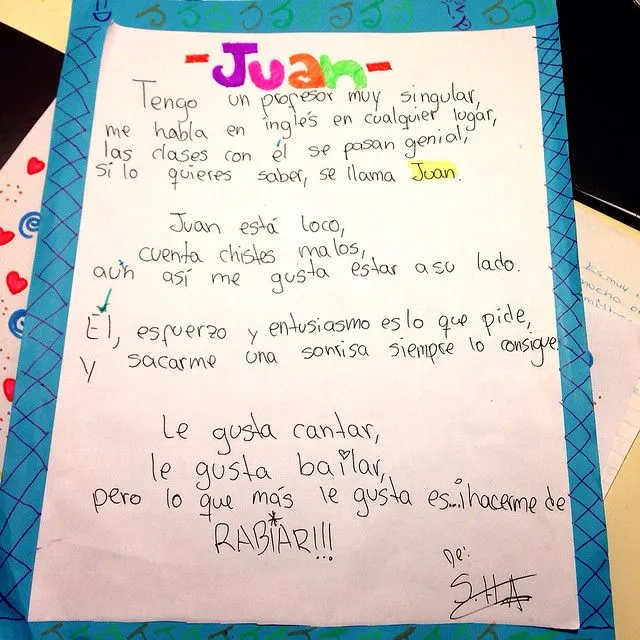 -Juan-
Tengo un profesor muy singular,
me habla en inglés en cualquier lugar,
las clases con él se pasan genial,
si lo quieres saber, se llama Juan.
Juan está loco,
cuenta chistes malos,
aún así me gusta estar a su lado.
Él, esfuerzo y entusiasmo es lo que pide,
y sacarme una sonrisa siempre lo consigue
Le gusta cantar,
le gusta bailar,
pero lo que más le gusta es...¡hacerme de
RABIAR!!!
De:
Es muy
mucho